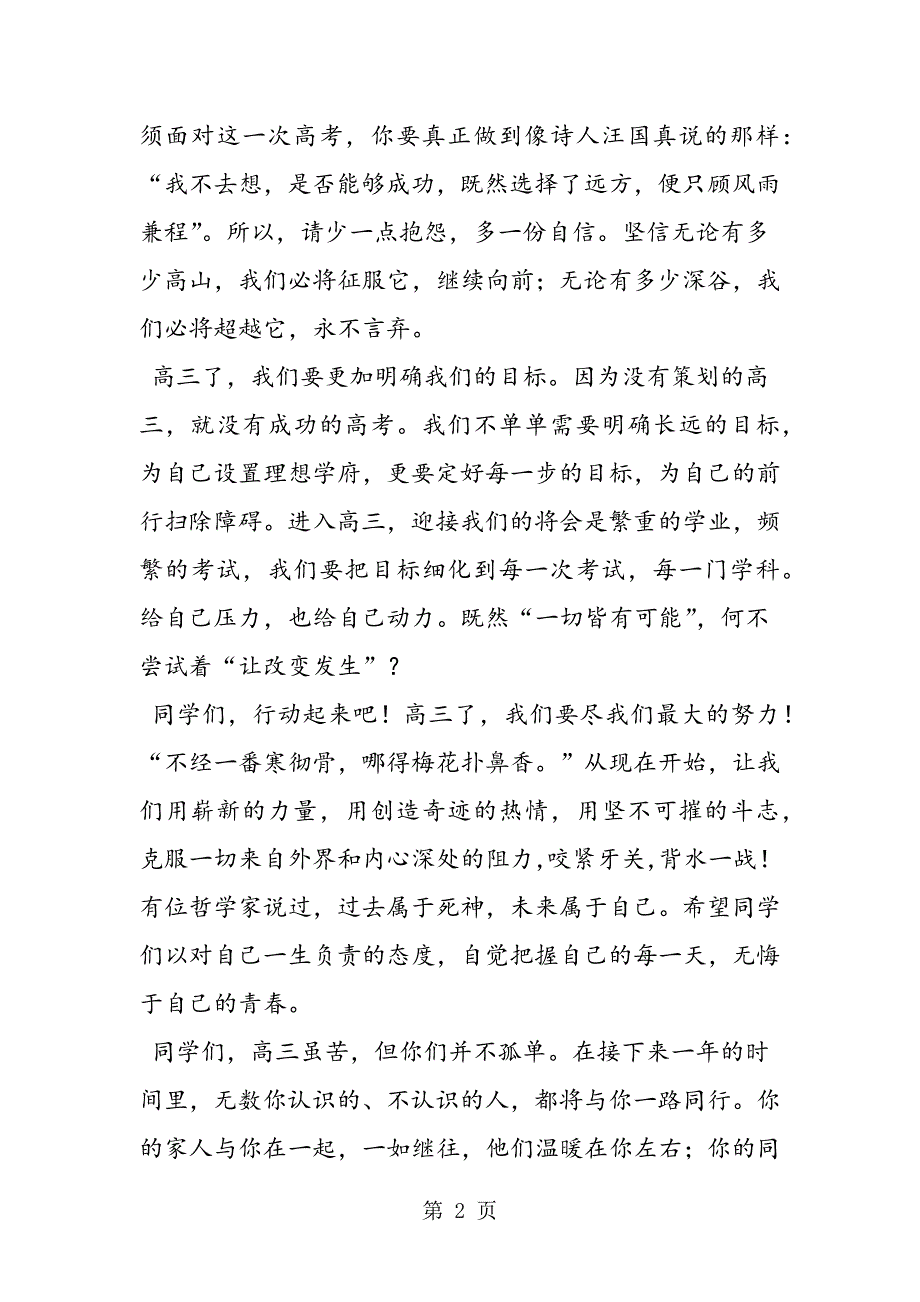 须面对这一次高考，你要真正做到像诗人汪国真说的那样：
“我不去想，是否能够成功，既然选择了远方，便只顾风雨
兼程”。所以，请少一点抱怨，多一份自信。坚信无论有多
少高山，我们必将征服它，继续向前；无论有多少深谷，我
们必将超越它，永不言弃。
高三了，我们要更加明确我们的目标。因为没有策划的高
三，就没有成功的高考。我们不单单需要明确长远的目标，
为自己设置理想学府，更要定好每一步的目标，为自己的前
行扫除障碍。进入高三，迎接我们的将会是繁重的学业，频
繁的考试，我们要把目标细化到每一次考试，每一门学科。
给自己压力，也给自己动力。既然“一切皆有可能”，何不
尝试着“让改变发生”？
同学们，行动起来吧！高三了，我们要尽我们最大的努力！
“不经一番寒彻骨，哪得梅花扑鼻香。”从现在开始，让我
们用崭新的力量，用创造奇迹的热情，用坚不可摧的斗志，
克服一切来自外界和内心深处的阻力,咬紧牙关,背水一战！
有位哲学家说过，过去属于死神，未来属于自己。希望同学
们以对自己一生负责的态度，自觉把握自己的每一天，无悔
于自己的青春。
同学们，高三虽苦，但你们并不孤单。在接下来一年的时
间里，无数你认识的、不认识的人，都将与你一路同行。你
的家人与你在一起，一如继往，他们温暖在你左右；你的同
第 2 页